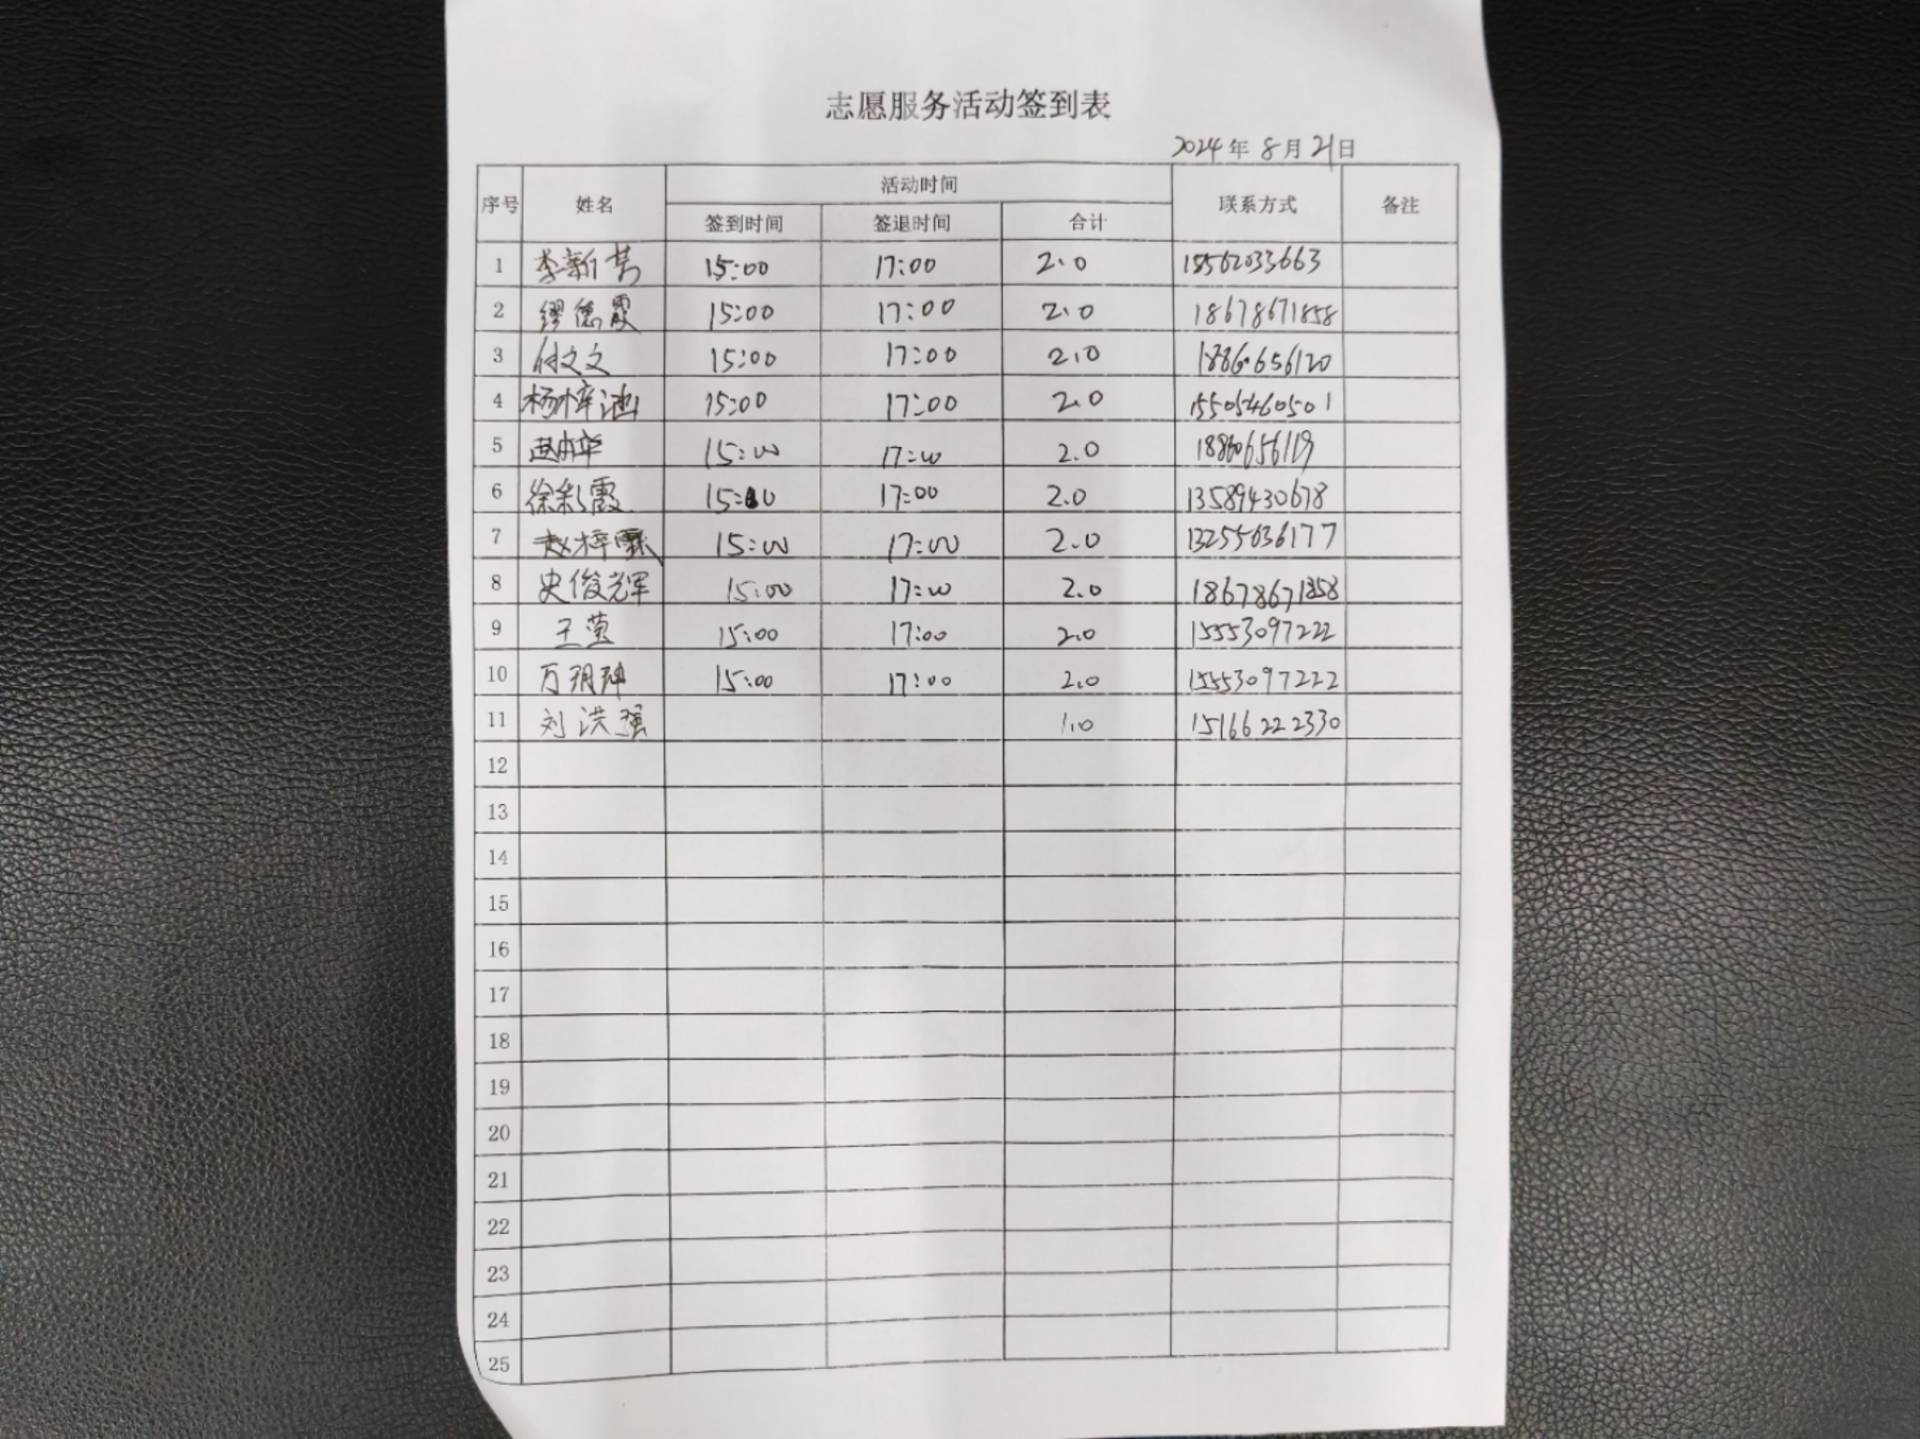 志愿服务活动签到表
2024年 8月21日
序号 姓名 活动时间 联系方式 备注
签到时间 签退时间 合计
1 李新芳 15:00 17:00 2.0 18562033663
2 缪德霞 15:00 17:00 2.0 18678671858
3 付文文 15:00 17:00 2.0 18860656120
4 杨梓涵 15:00 17:00 2.0 15505460501
5 15:00 17:00 2.0 18860656119
6 徐彩霞 15:00 17:00 2.0 13589430678
7 赵梓霖 15:00 17:00 2.0 13255636177
8 史俊辉 15:00 17:00 2.0 18678671858
9 王莹 15:00 17:00 2.0 15553097222
10 万玥珅 15:00 17:00 2.0 15553097222
11 刘洪强 1.0 15166222330
12
13
14
15
16
17
18
19
20
21
22
23
24
25